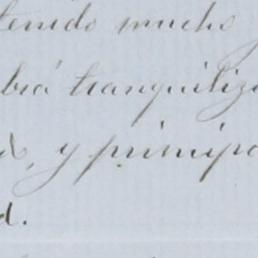 tenido mucho
brá tranquiliz
d, y principa
d.